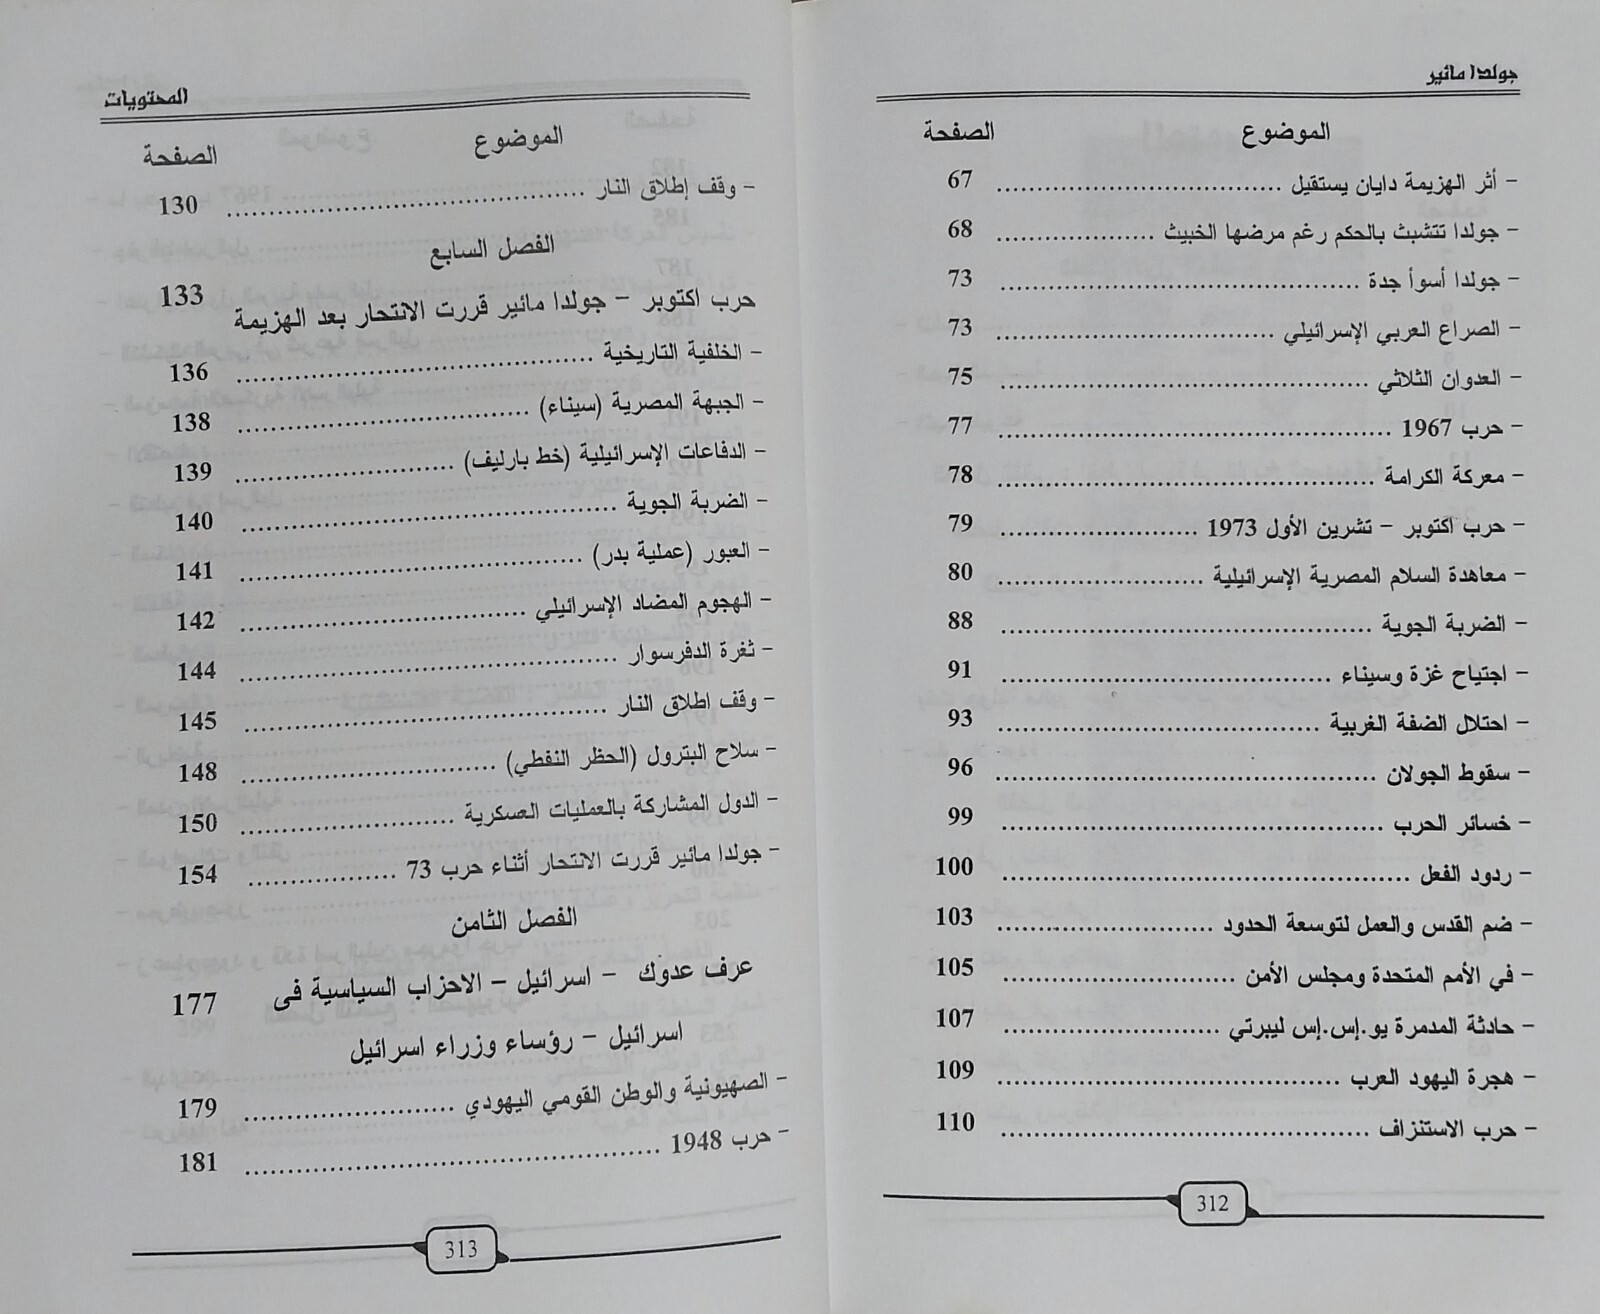 جولدا مائير
الموضوع الصفحة
- أثر الهزيمة دايان يستقيل ............................. 67
- جولدا تتشبث بالحكم رغم مرضها الخبيث ................ 68
- جولدا أسوأ جدة .................................... 73
- الصراع العربي الإسرائيلي ............................. 73
- العدوان الثلاثي .................................... 75
- حرب 1967 ........................................ 77
- معركة الكرامة ...................................... 78
- حرب اكتوبر - تشرين الأول 1973 .................... 79
- معاهدة السلام المصرية الإسرائيلية ..................... 80
- الضربة الجوية ...................................... 88
- اجتياح غزة وسيناء .................................. 91
- احتلال الضفة الغربية ................................ 93
- سقوط الجولان ...................................... 96
- خسائر الحرب ....................................... 99
- ردود الفعل ......................................... 100
- ضم القدس والعمل لتوسعة الحدود ...................... 103
- في الأمم المتحدة ومجلس الأمن ........................ 105
- حادثة المدمرة يو.إس.إس ليبرتي ...................... 107
- هجرة اليهود العرب ................................... 109
- حرب الاستنزاف ...................................... 110
312
المحتويات
الموضوع الصفحة
- وقف إطلاق النار ..................................... 130
الفصل السابع
حرب اكتوبر - جولدا مائير قررت الانتحار بعد الهزيمة 133
- الخلفية التاريخية ..................................... 136
- الجبهة المصرية (سيناء) .............................. 138
- الدفاعات الإسرائيلية (خط بارليف) ...................... 139
- الضربة الجوية ....................................... 140
- العبور (عملية بدر) .................................. 141
- الهجوم المضاد الإسرائيلي ............................. 142
- ثغرة الدفرسوار ....................................... 144
- وقف اطلاق النار ..................................... 145
- سلاح البترول (الحظر النفطي) .......................... 148
- الدول المشاركة بالعمليات العسكرية ...................... 150
- جولدا مائير قررت الانتحار أثناء حرب 73 ............... 154
الفصل الثامن
عرف عدوك - اسرائيل - الاحزاب السياسية فى 177
اسرائيل - رؤساء وزراء اسرائيل
- الصهيونية والوطن القومي اليهودي ...................... 179
- حرب 1948 ......................................... 181
313